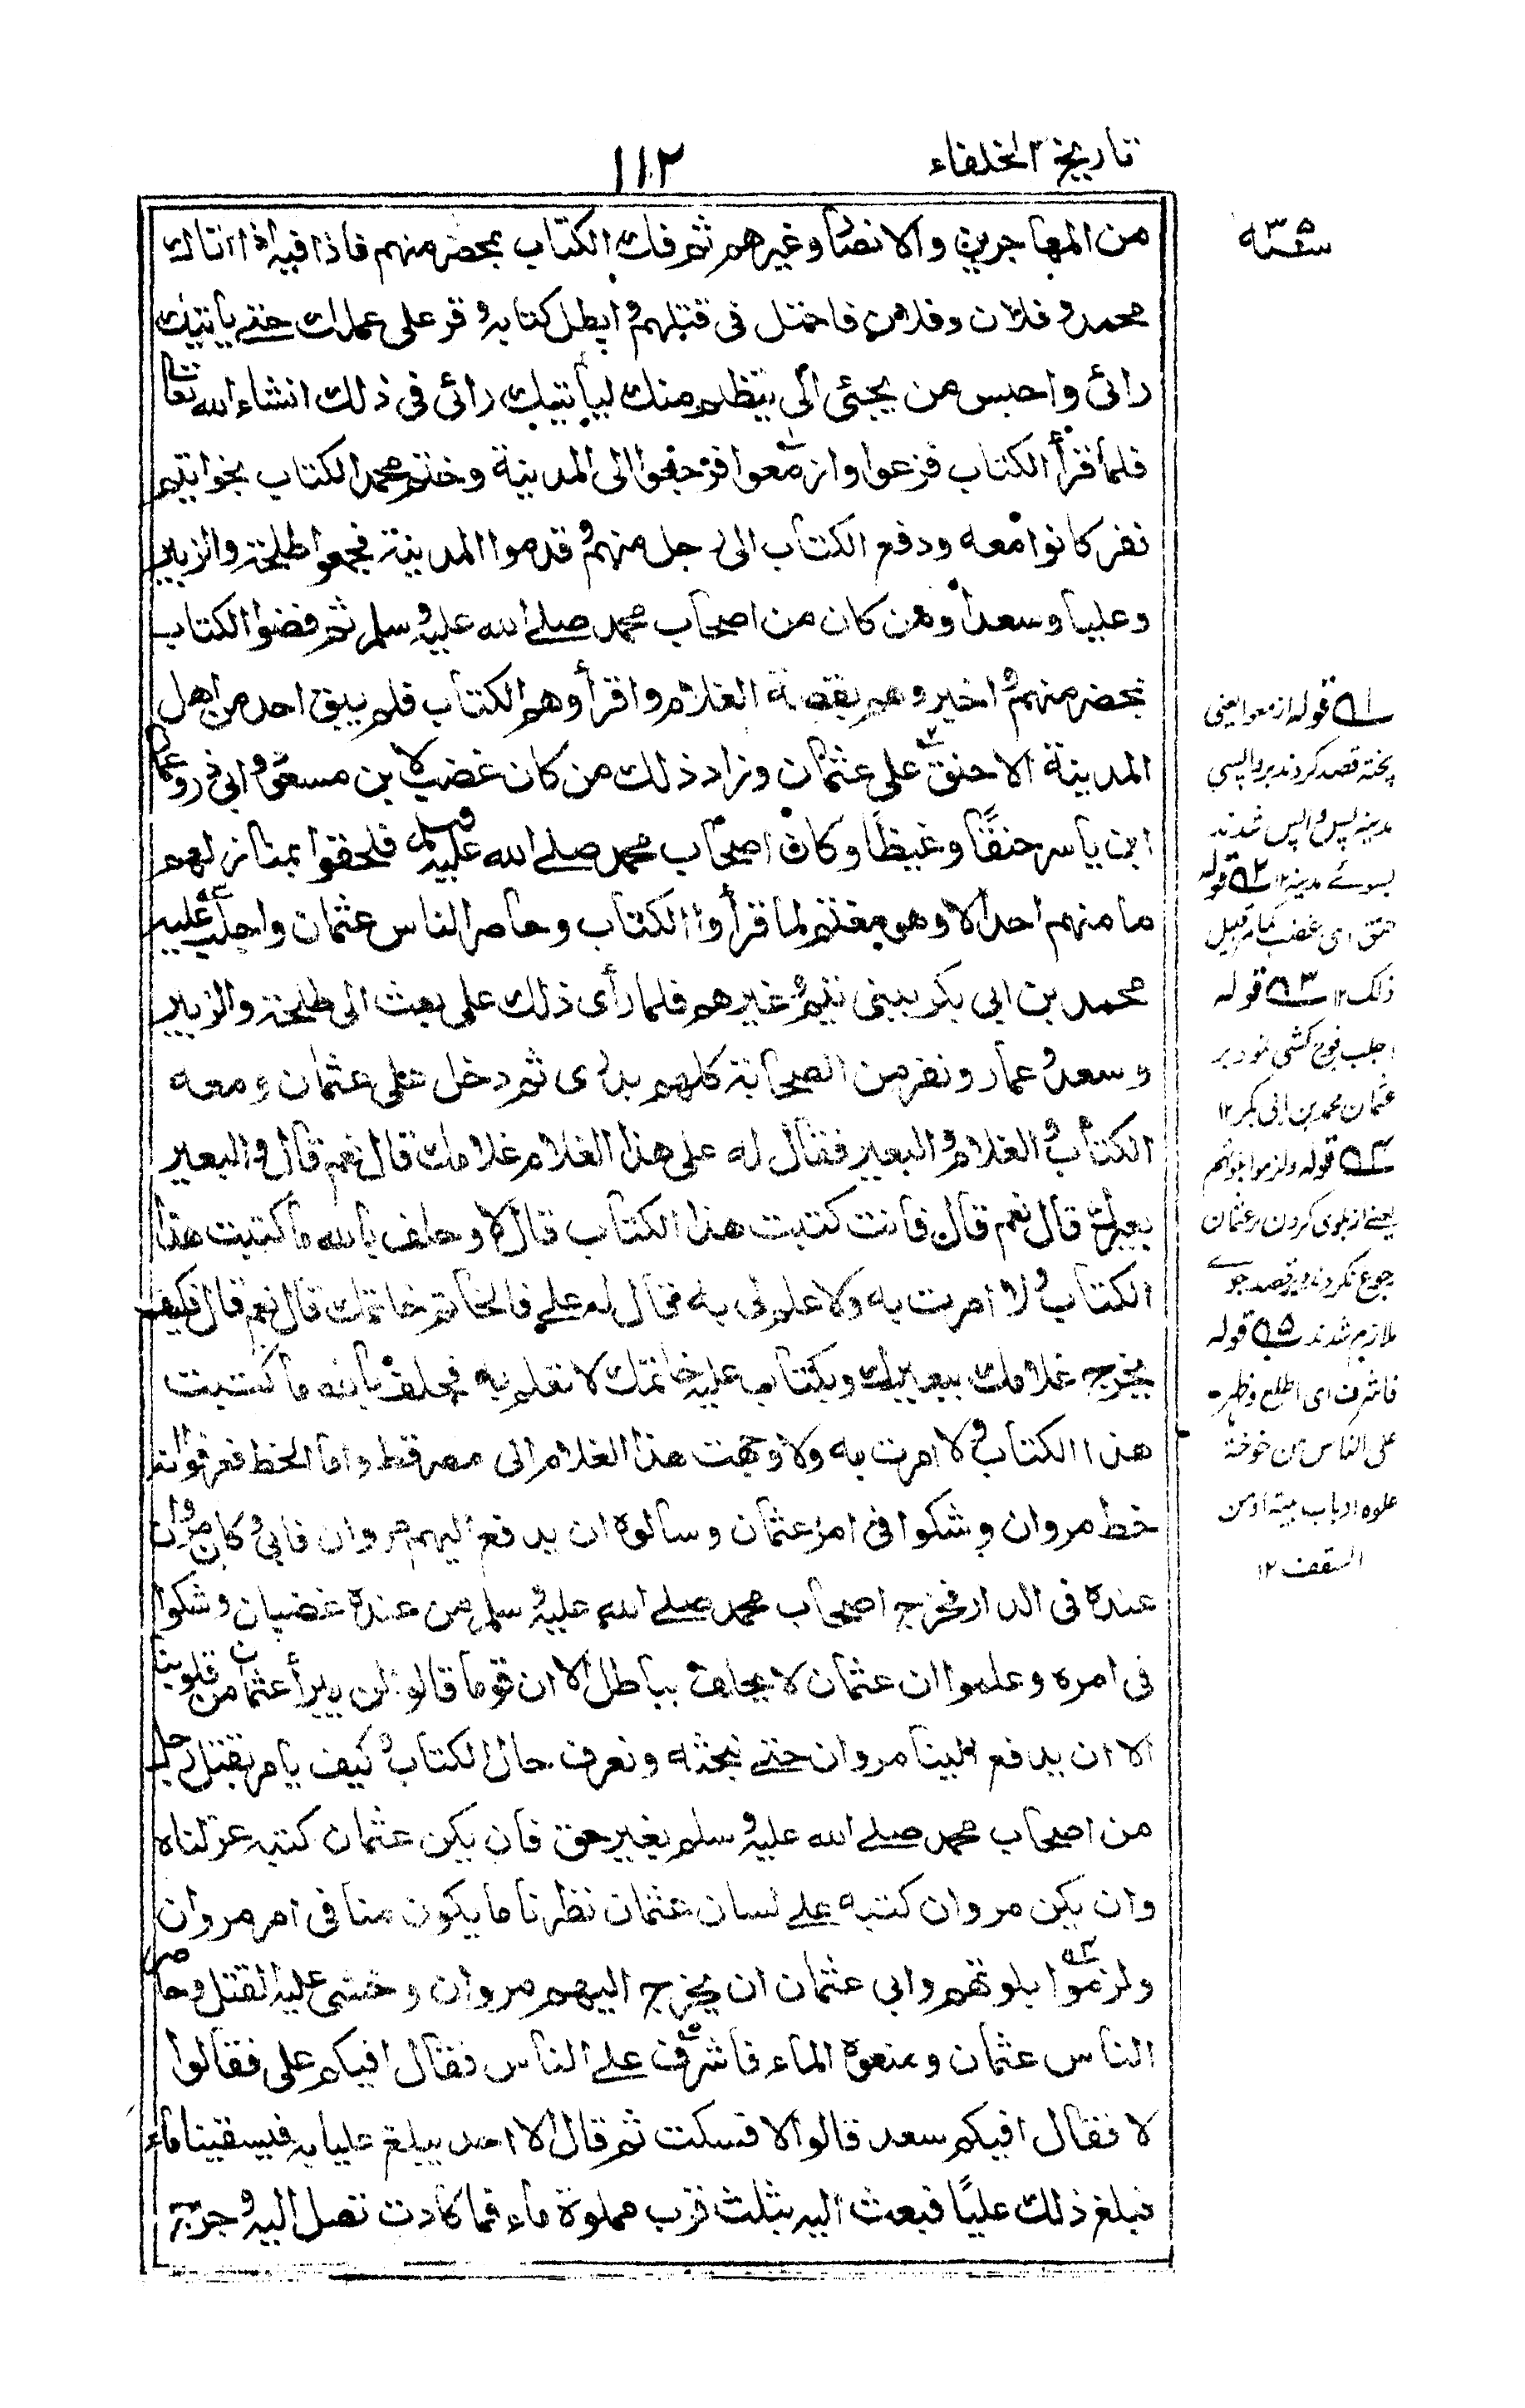 تاريخ الخلفاء
١١٢
من المهاجرين والانصار وغيرهم ثم فك الكتاب بمحضر منهم فاذا فيه اذا اتاك
محمد و فلان وفلان فاحتل فى قتلهم و ابطل كتابه و قر على عملك حتى ياتيك
رائى واحبس من يجئى الى يتظلم منك ليأتيك رائى فى ذلك انشاء الله تعالى
فلما قرأ الكتاب فزعوا وازمعوا فرجعوا الى المدينة وختم محمد الكتاب بخواتيم
نفر كانوا معه ودفع الكتاب الى رجل منهم و قدموا المدينة فجمعوا طلحة والزبير
وعليا وسعدا ومن كان من اصحاب محمد صلے الله عليه و سلم ثم فضوا الكتاب
بمحضر منهم و اخبروهم بقصة الغلام واقرأوهم الكتاب فلم يبق احد من اهل
المدينة الا حنق على عثمان وزاد ذلك من كان غضب لابن مسعود و ابى ذر وعمار
ابن ياسر حنقًا وغيظًا وكان اصحاب محمد صلے الله عليه وسلم فلحقوا بمنازلهم
ما منهم احد الا وهو مغتم لما قرأوا الكتاب وحاصر الناس عثمان واجلب عليه
محمد بن ابى بكر ببنى تيم و غيرهم فلما رأى ذلك على بعث الى طلحة والزبير
وسعد و عمار ونفر من الصحابة كلهم بدرى ثم دخل على عثمان ومعه
الكتاب و الغلام و البعير فقال له على هذا الغلام غلامك قال نعم قال و البعير
بعيرك قال نعم قال فانت كتبت هذا الكتاب قال لا وحلف بالله ما كتبت هذا
الكتاب و لا امرت به ولا علم لى به فقال له علے فالخاتم خاتمك قال نعم قال فكيف
يخرج غلامك ببعيرك وبكتاب عليه خاتمك لا تعلم به فحلف بالله ما كتبت
هذا الكتاب و لا امرت به ولا وجهت هذا الغلام الى مصر قط واما الخط فعرفوا انه
خط مروان وشكوا فى امر عثمان وسالوه ان يدفع اليهم مروان فابى و كان مروان
عنده فى الدار فخرج اصحاب محمد صلے الله عليه و سلم من عنده غضبان وشكوا
فى امره وعلموا ان عثمان لا يحلف بباطل الا ان قوما قالوا لن يبرأ عثمان من قلوبنا
الا ان يدفع الينا مروان حتى نبحثه ونعرف حال الكتاب و كيف يامر بقتل رجل
من اصحاب محمد صلے الله عليه و سلم بغير حق فان يكن عثمان كتبه عزلناه
وان يكن مروان كتبه علے لسان عثمان نظرنا ما يكون منا فى امر مروان
ولزموا بيوتهم وابى عثمان ان يخرج اليهم مروان وخشى عليه القتل و حاصر
الناس عثمان ومنعوه الماء فاشرف علے الناس فقال افيكم على فقالوا
لا فقال افيكم سعد قالوا لا فسكت ثم قال الا احد يبلغ عليا فيسقينا ماء
فبلغ ذلك عليًا فبعث اليه بثلث قرب مملوة ماء فما كادت تصل اليه و جرح
سنه ٣٥
١ قوله ازمعوا يعنى
پخته قصد كردند بر واپسى
مدينه پس واپس شدند
بسوئے مدينه ١٢ ٢ قوله
حنق اى غضب
ذلك ١٢ ٣ قوله
اجلب فوج كشى نمود بر
عثمان محمد بن ابى بكر ١٢
٤ قوله ولزموا بيوتهم
يعنے از بلوى كردن بر عثمان
ملازم شدند ٥ قوله
فاشرف اى اطلع وظهر
على الناس من خوخة
السقف ١٢